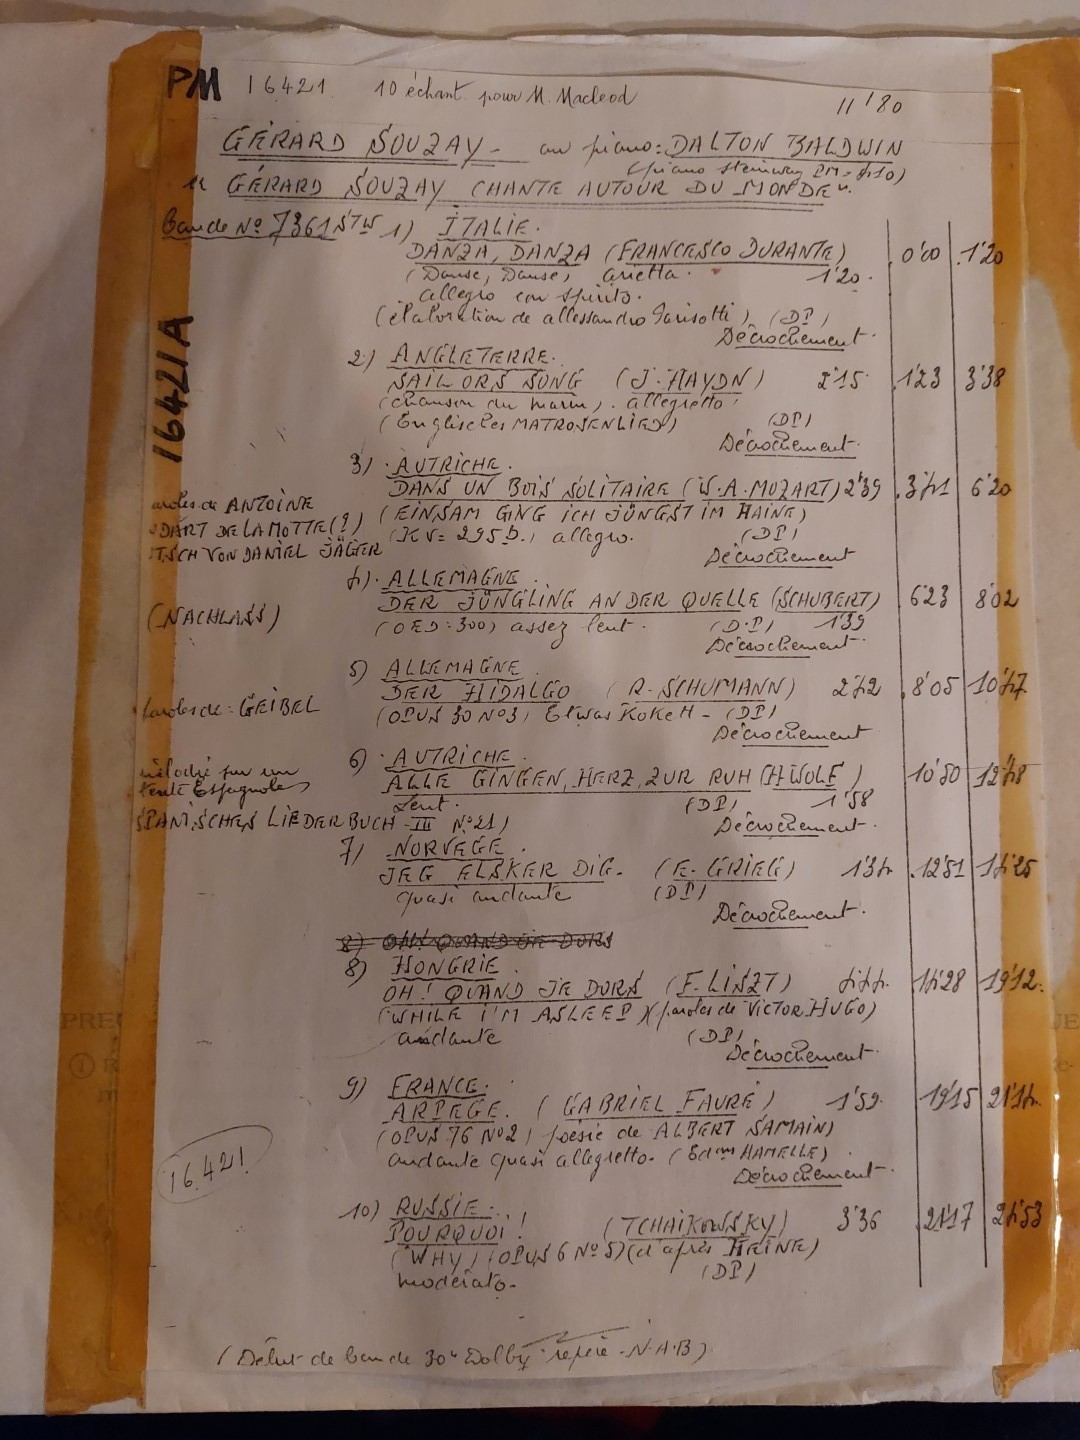 PM 16421 10 échant pour M. Macleod
11'80
GÉRARD SOUZAY - au piano: DALTON BALDWIN
(piano Steinway PM = 440)
"GÉRARD SOUZAY CHANTE AUTOUR DU MONDE".
Bande No 7361 STW 1) ITALIE.
DANZA, DANZA (FRANCESCO DURANTE) 0'00 1'20
(Danse, Danse, arietta. 1'20.
allegro con spirito.
(élaboration de allessandro Parisotti) (DP)
Décrochement.
16421A
2) ANGLETERRE.
SAILORS SONG (J. HAYDN) 2'15 1'23 3'38
(chanson du marin). allegretto
(Englisches MATROSENLIED) (DP)
Décrochement.
3) AUTRICHE.
DANS UN BOIS SOLITAIRE (W.A. MOZART) 2'39 3'41 6'20
aroles de ANTOINE (EINSAM GING ICH JÜNGST IM HAINE)
DART DE LA MOTTE (?) (KV = 295b.) allegro. (DP)
TSCH VON DANIEL JÄGER Décrochement
4) ALLEMAGNE.
DER JÜNGLING AN DER QUELLE (SCHUBERT) 6'23 8'02
(NACHLASS) (OED: 300) assez lent. (D.P) 1'39
Décrochement
5) ALLEMAGNE.
DER HIDALGO (R. SCHUMANN) 2'42 8'05 10'47
paroles de: GEIBEL (OPUS 30 No3) Etwas Kokett - (DP)
Décrochement
6) AUTRICHE.
mélodie sur un ALLE GINGEN, HERZ, ZUR RUH (H WOLF) 10'50 12'48
texte Espagnole) Lent. (DP) 1'58
SPANISCHES LIEDERBUCH - III No 21) Décrochement.
7) NORVEGE.
JEG ELSKER DIG. (E. GRIEG) 1'34 12'51 14'25
quasi andante (DP)
Décrochement.
8) OH! QUAND JE DORS
8) HONGRIE.
OH! QUAND JE DORS (F. LISZT) 4'44. 14'28 19'12.
(WHILE I'M ASLEEP) (paroles de VICTOR HUGO)
andante (DP)
Décrochement.
9) FRANCE.
ARPEGE. (GABRIEL FAURÉ) 1'59. 19'15 21'14.
(OPUS 76 No2) poésie de ALBERT SAMAIN)
andante quasi allegretto. (Edons HAMELLE)
Décrochement.
16.421
10) RUSSIE.
POURQUOI! (TCHAIKOWSKY) 3'36 21'17 24'53
(WHY) (OPUS 6 No 5) (d'après HEINE)
moderato. (DP)
(Début de bande 30" Dolby repère - N.A.B)